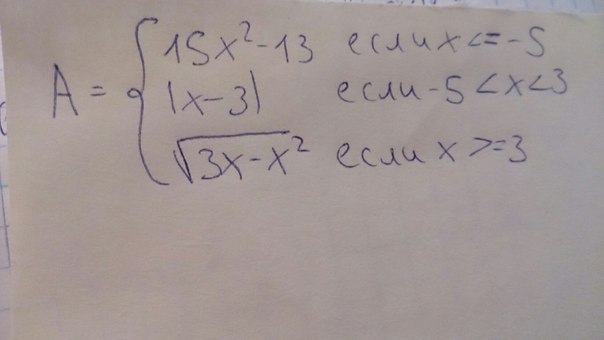 15x²-13 если x<=-5
A = { |x-3| если -5<x<3
√3x-x² если x>=3